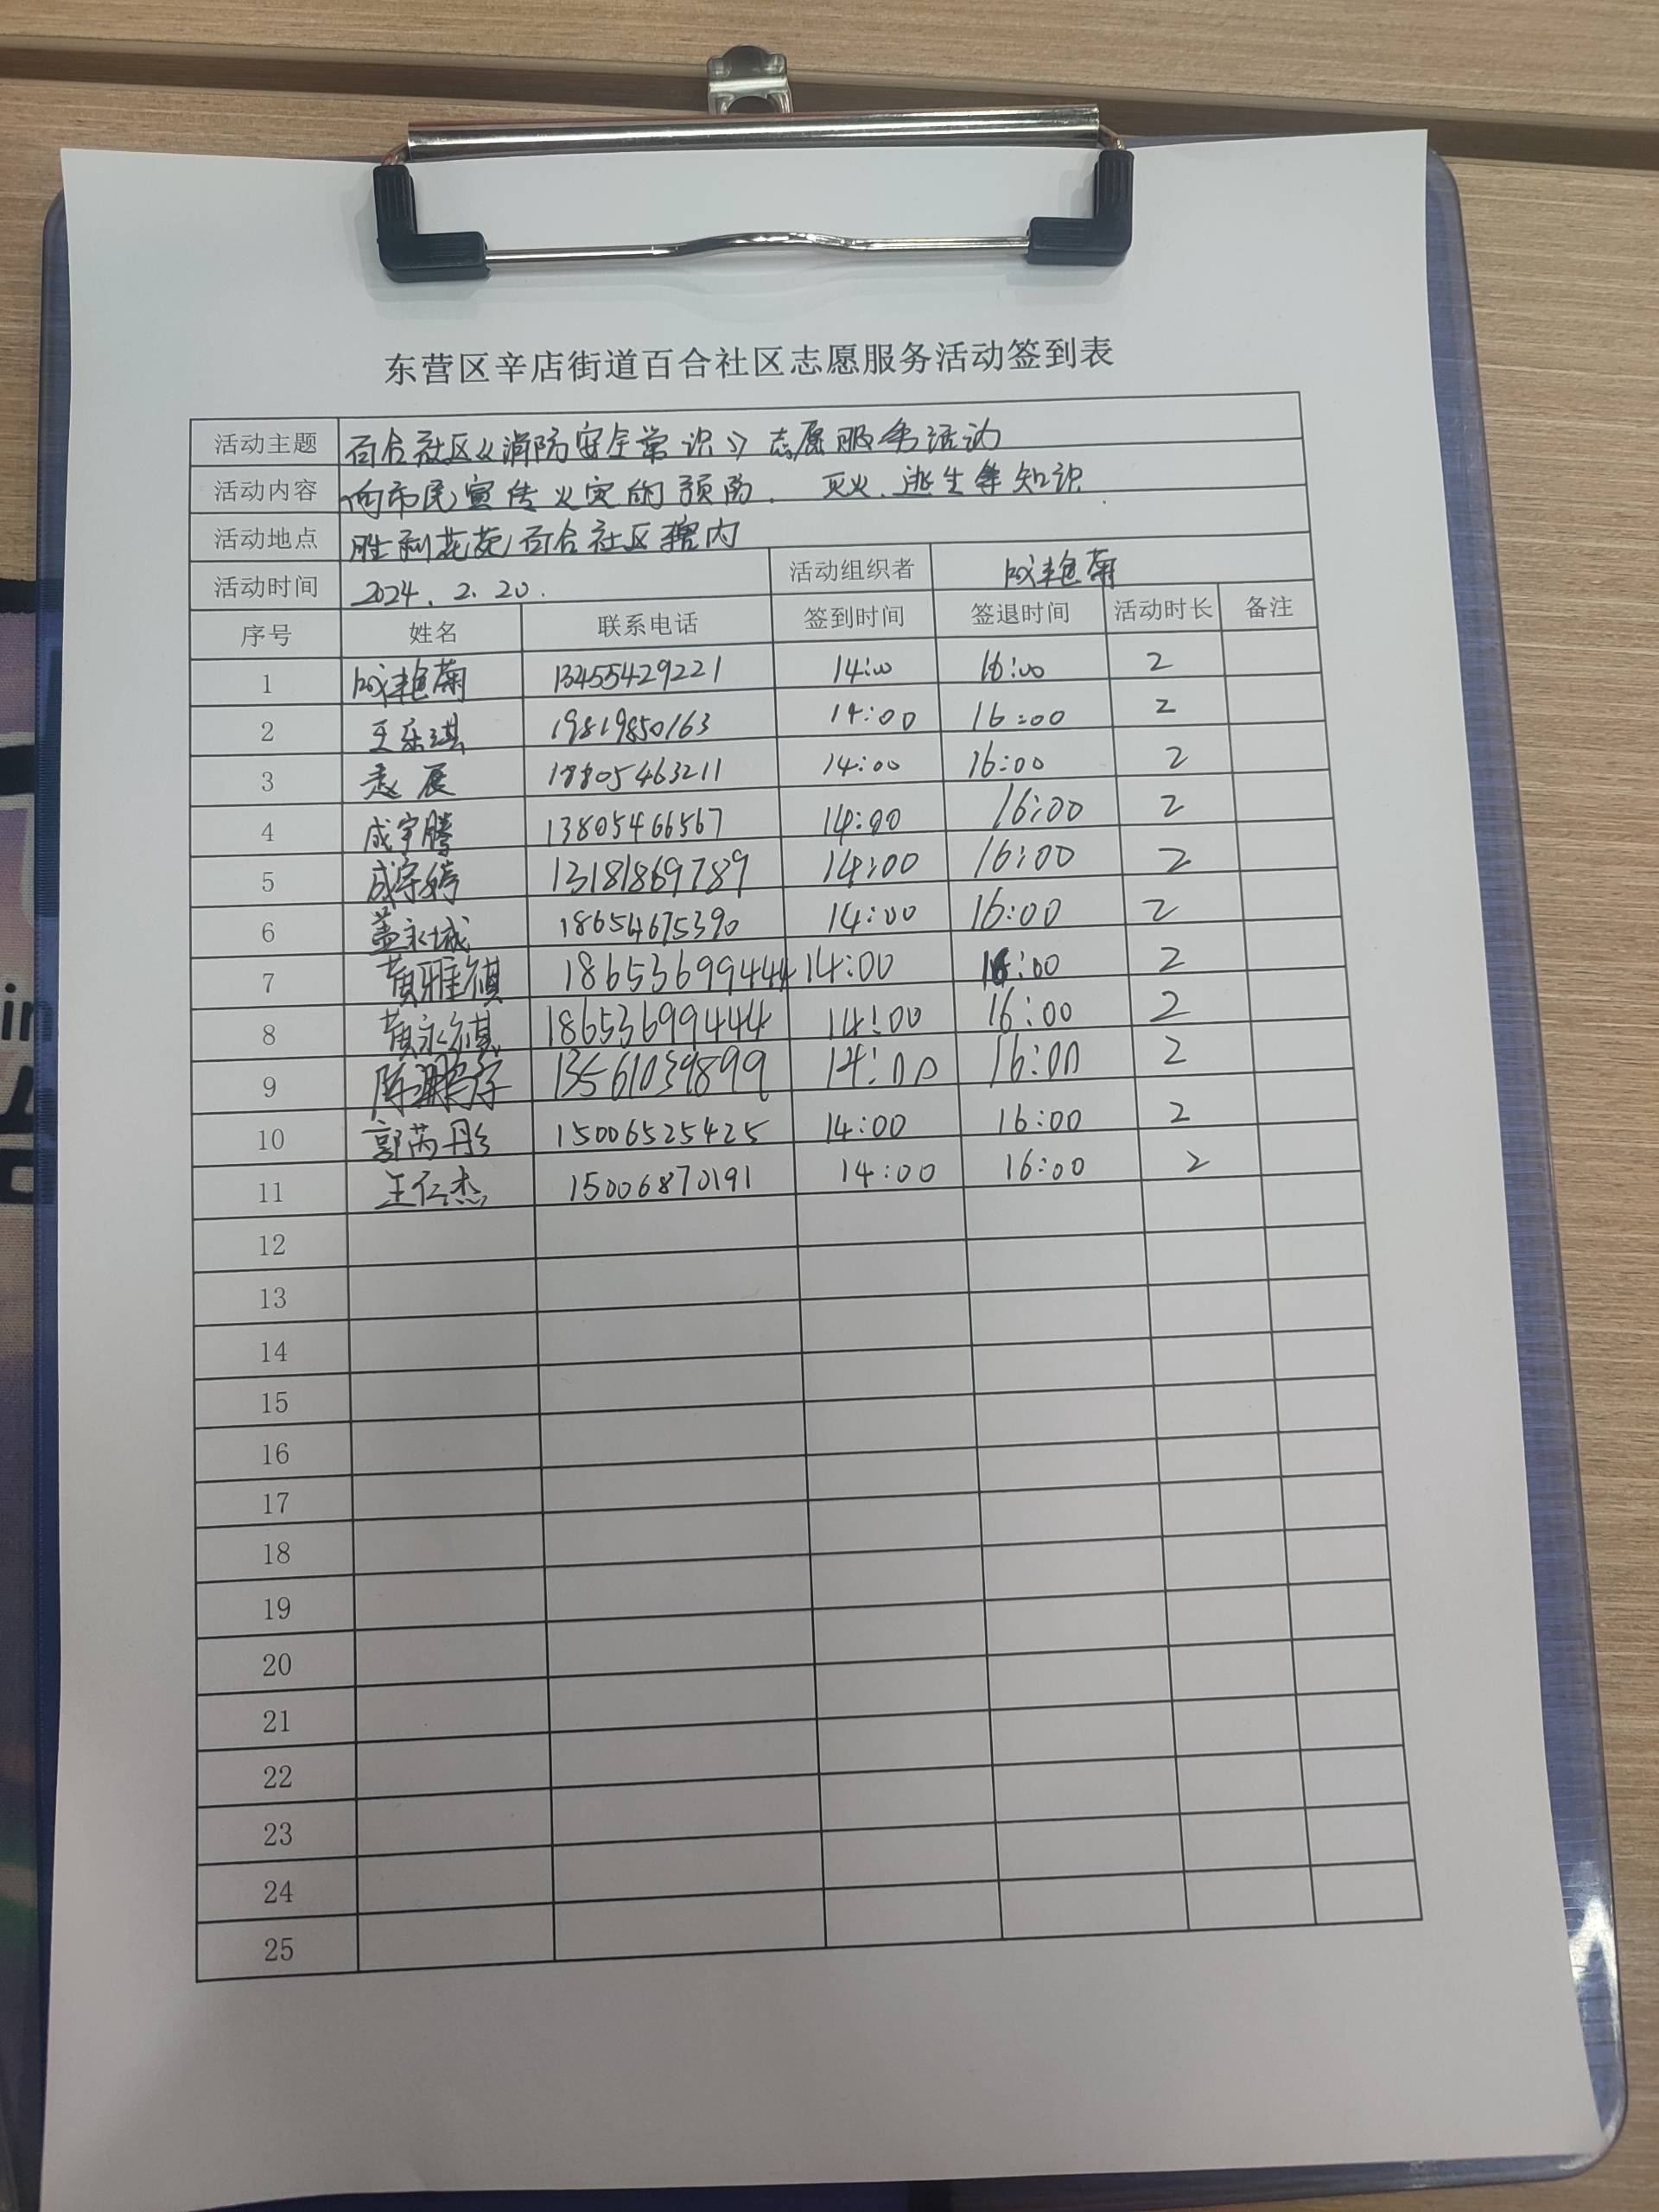 东营区辛店街道百合社区志愿服务活动签到表
活动主题 百合社区《消防安全常识》志愿服务活动
活动内容 向市民宣传火灾的预防、灭火、逃生等知识
活动地点 胜利花苑/百合社区辖内
活动时间 2024.2.20. 活动组织者 成艳菊
序号 姓名 联系电话 签到时间 签退时间 活动时长 备注
1 成艳菊 13455429221 14:00 16:00 2
2 王乐琪 19819850163 14:00 16:00 2
3 赵展 18805463211 14:00 16:00 2
4 成宇腾 13805466567 14:00 16:00 2
5 成宇婷 13181869789 14:00 16:00 2
6 盖永城 18654675390 14:00 16:00 2
7 黄雅祺 18653699444 14:00 16:00 2
8 黄永祺 18653699444 14:00 16:00 2
9 陈 13561039899 14:00 16:00 2
10 郭芮彤 15006525425 14:00 16:00 2
11 王仁杰 15006870191 14:00 16:00 2
12
13
14
15
16
17
18
19
20
21
22
23
24
25